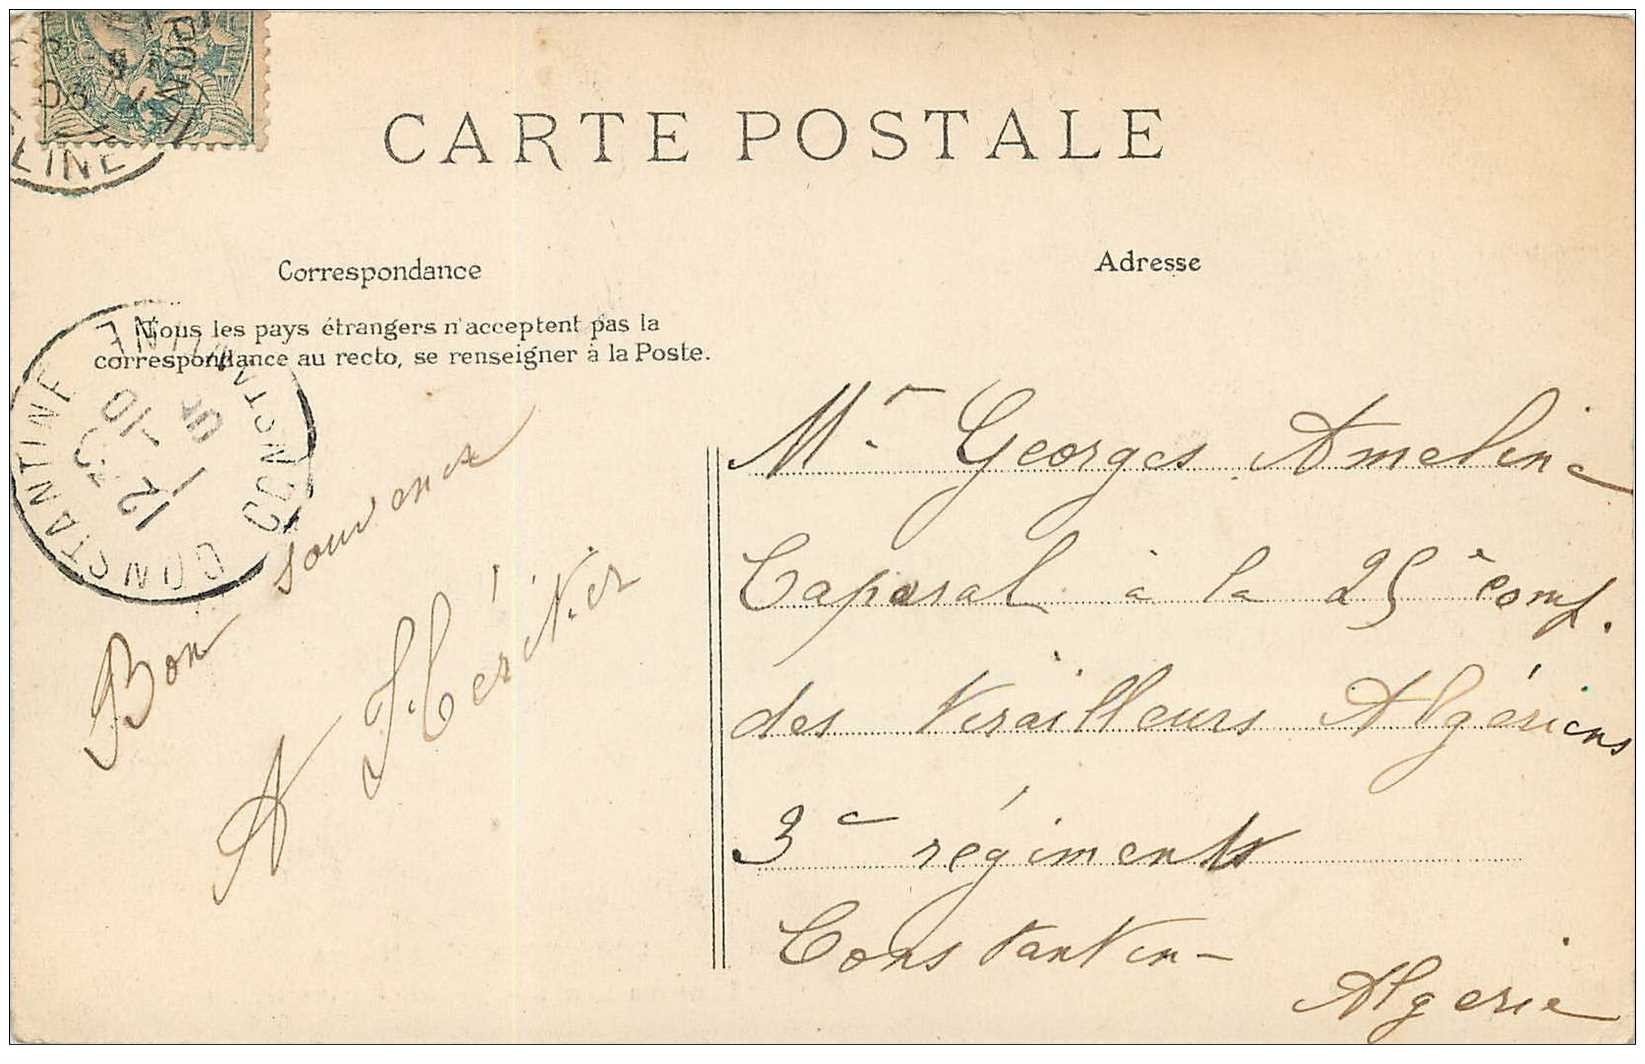 CARTE POSTALE
Correspondance
Tous les pays étrangers n'acceptent pas la
correspondance au recto, se renseigner à la Poste.
Bon souvenir
A Lhéritier
Adresse
Mr Georges Ameline
Caporal à la 25e comp.
des tirailleurs Algériens
3e régiment
Constantine
Algerie
CONSTANTINE CONSTANTINE
12 30
1 -10
05
LINE